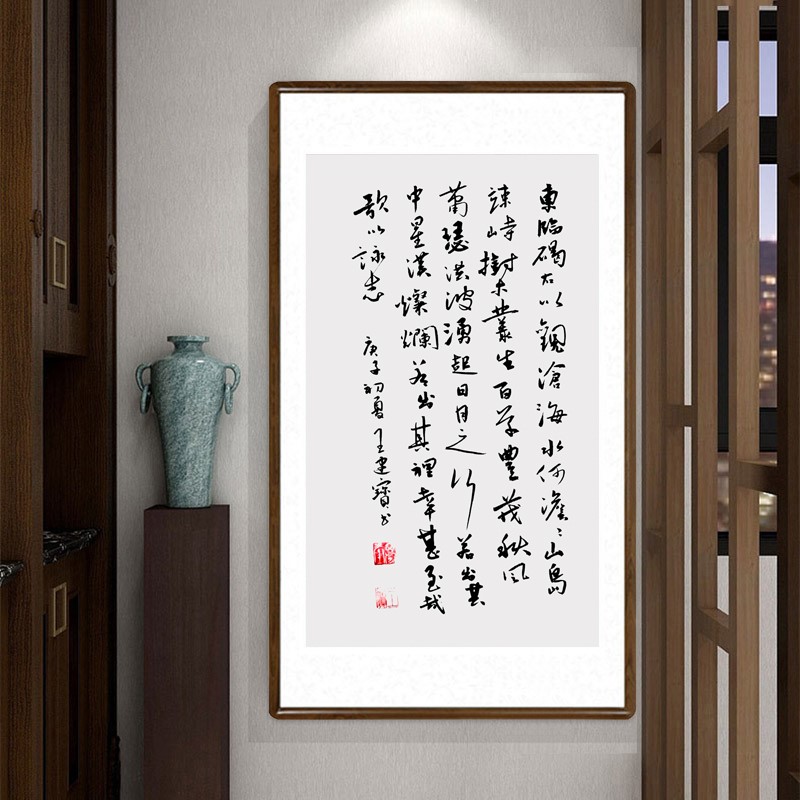 東臨碣石以觀滄海水何澹〻山島
竦峙樹木叢生百草豐茂秋風
蕭瑟洪波湧起日月之行若出其
中星漢燦爛若出其裡幸甚至哉
歌以詠志
庚子初夏王建寶书